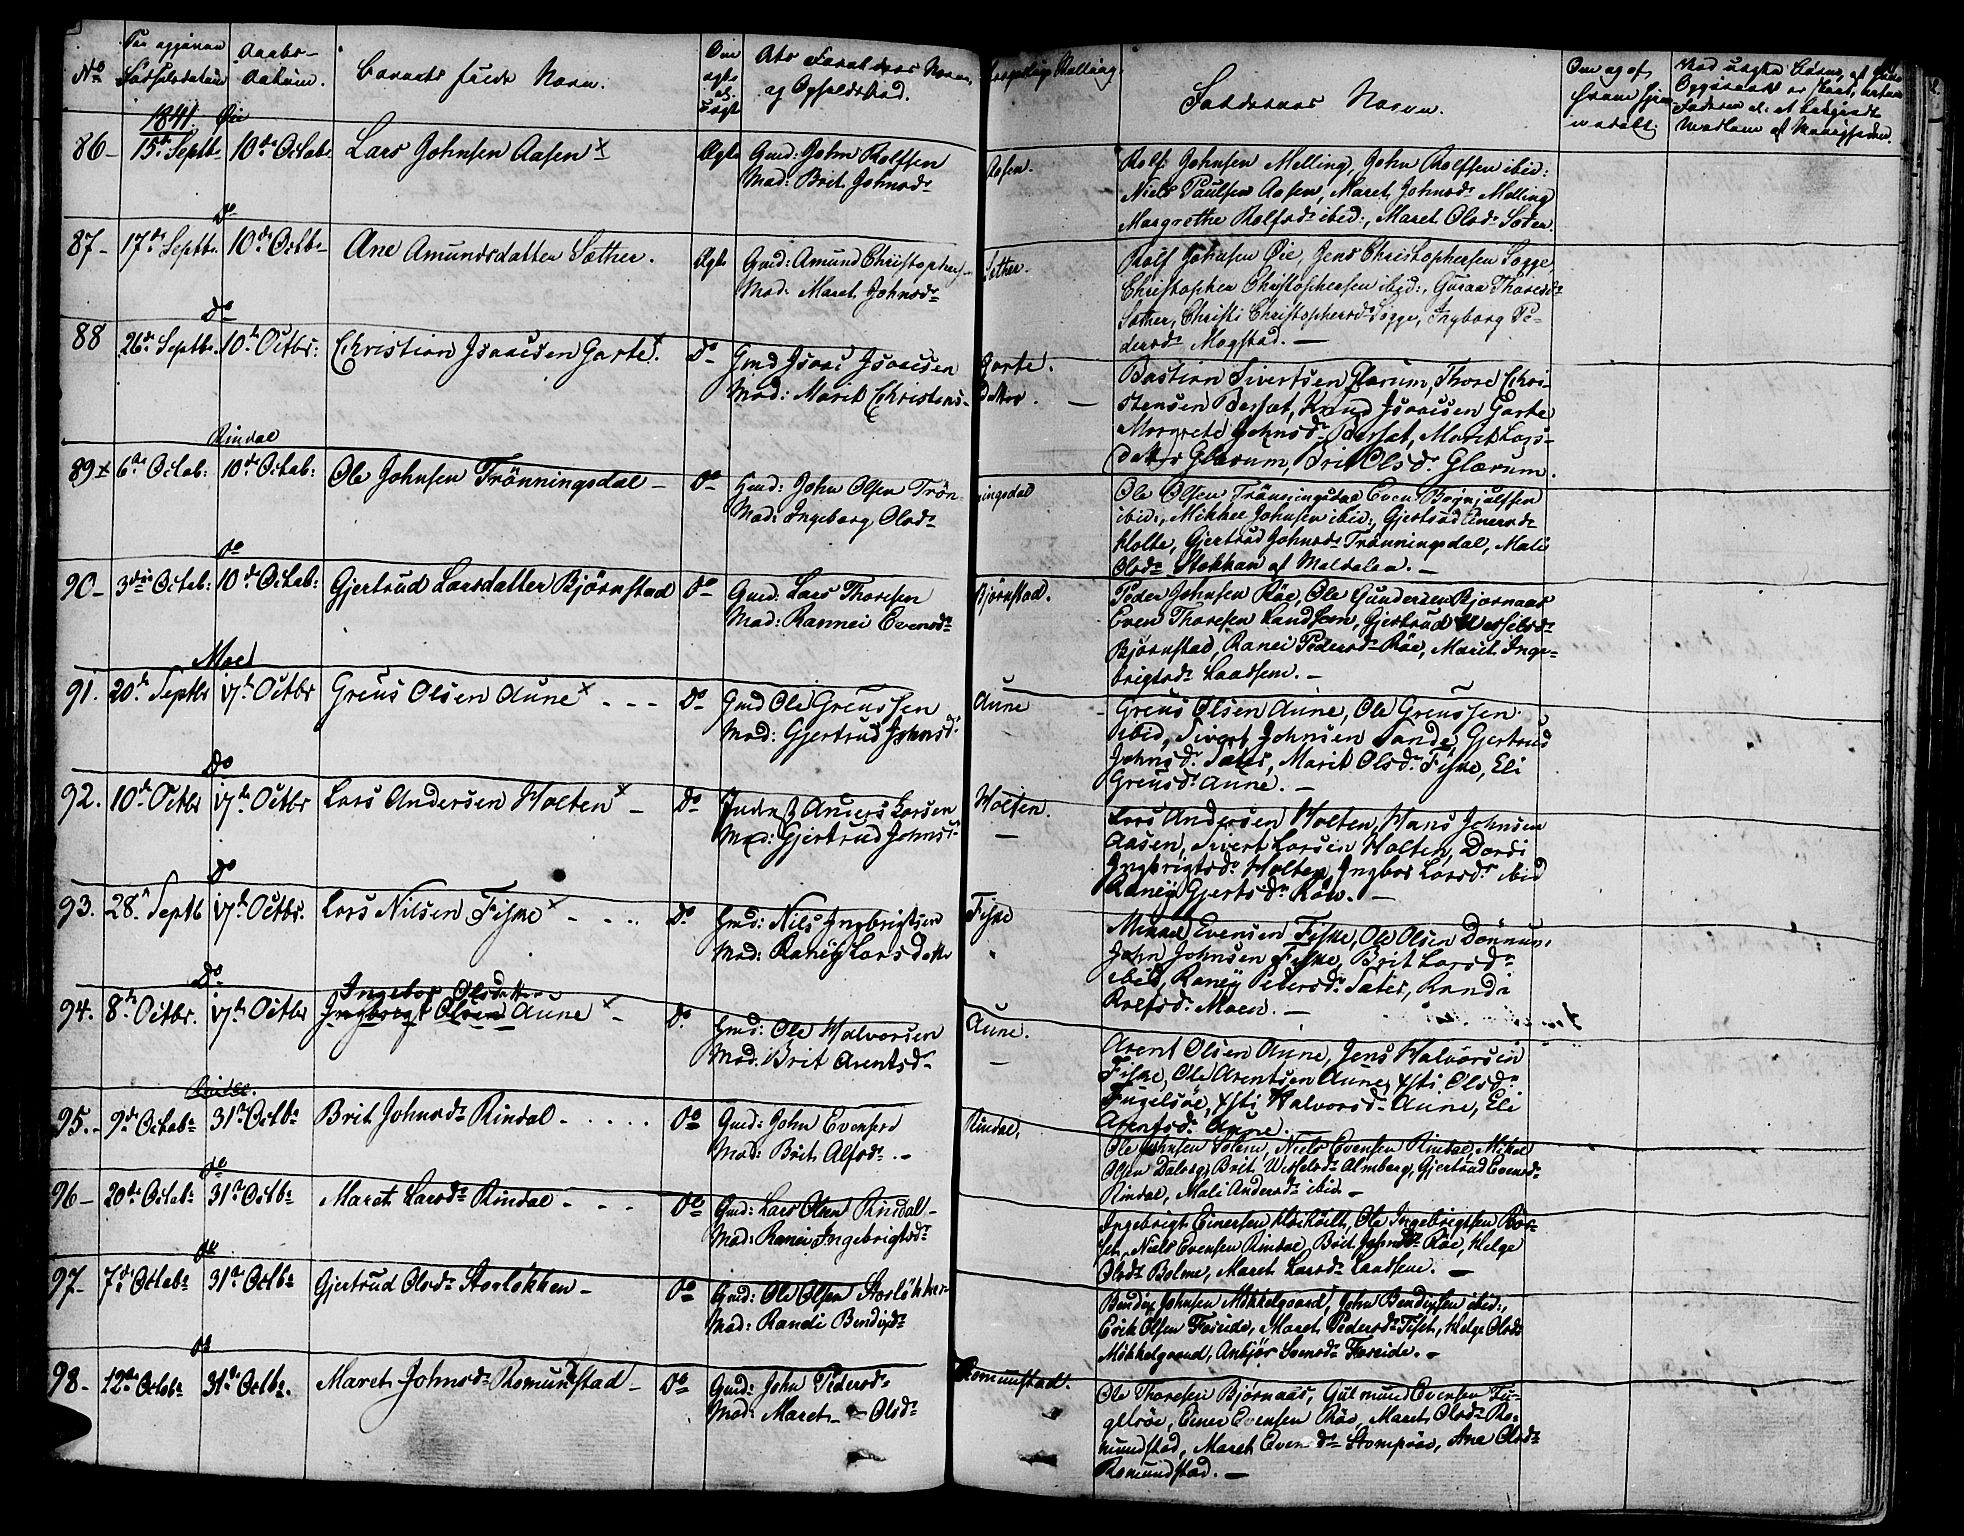 No
Den opgivne Fødselsdatum
Daabs-Datum.
Barnets fulde Navn.
Om ægte el. uægte
Dets Forældres Navn, og Opholdsted.
borgerlige Stilling.
Faddernes Navn.
1841. Øie
86- 15de Septb. 10de Octob. Lars Johnsen Aasen x Ægte Gmd: John Rolfsen Aasen.
Mod: Brit Johnsd.
Rolf Johnsen Melling, John Rolfsen ibid:
Niels Paulsen Aasen, Maret Johnsd. Melling
Margrethe Rolfsd. ibid:, Maret Olsd. Sæter.
Do
87- 17de Septb. 10de Octb. Ane Amundsdatter Sæther. Ægte Gmd: Amund Christophers. Sæther.
Mod: Maret Johnsd.
Rolf Johnsen Øie, Jens Christophersen Sogge,
Christopher Christophersen ibid:, Guraa Thoresd.
Sæther, Christi Christophersd. Sogge, Ingborg Pe-
dersd. Mogstad. —
Do
88 26de Septb. 10de Octbr: Christian Isaacsen Garte. Do Gmd Isaac Isaacsen Garte.
Mod: Marit Christens- datter. —
Bastian Sivertsen Glærum, Thore Chri-
stensen Bersæt, Knud Isaacsen Garte
Margrete Johnsd. Bersæt, Marit Lars-
datter Glærum, Brit Olsd. Glærum.
Rindal
89 x 6te Octob: 10de Octob: Ole Johnsen Trønningsdal - Do Gmd: John Olsen Trøn- ningsdal
Mod: Ingeborg Olsd.
Ole Olsen Trønningsdal Even
ibid:, Mikkel Johnsen ibid:, Gjertrud
Holte, Gjertrud Johnsd. Trønningsdal, Mali
Olsd. Stokkan af Meldalen. —
Do
90- 3die Octob: 10de Octob: Gjertrud Larsdatter Bjørnstad Do Gmd: Lars Thoresen Bjørnstad.
Mod: Rannei Evensd.
Peder Johnsen Røe, Ole Gundersen Bjørnaas
Even Thoresen Landsem, Gjertrud
Bjørnstad, Ranei Pedersd. Røe, Marit Inge-
brigtsd. Landsem. —
Moe
91. 20de Septbr 17de Octbr Greus Olsen Aune x - - - Do Gmd Ole Greussen Aune
Mod: Gjertrud Johnsd.
Greus Olsen Aune, Ole Greussen
ibid, Sivert Johnsen Sande, Gjertrud
Johnsd. Sæter, Marit Olsd. Fiske, Eli
Greusd. Aune. —
Do
92. 10de Octbr 17de Octbr Lars Andersen Holten x - Do Anders Larsen Holten.
Mod: Gjertrud Johnsd. —
Lars Andersen Holten, Hans Johnsen
Aasen, Sivert Larsen Holten, Dordi
Ingbrigtsd. Holten, Ingbor Larsd. ibid
Raney Gjertsd. Røen. —
Do
93. 28. Septb 17de Octbr. Lars Nilsen Fiske x - . . . Do Gmd: Nils Ingbrigtsen Fiske
Mod: Raney Larsdatter "
Mikkel Evensen Fiske, Ole Olsen
John Johnsen Fiske, Brit Larsd.
ibid, Raney Pedersd. Sæter, Randi
Rolfsd. Moen. —
Do
Ingebor Olsdatter
94. 8de Octbr. 17de Octbr Ingbrigt Olsen Aune x - Do Gmd: Ole Halvorsen Aune.
Mod: Brit Arentsd. —
Arent Olsen Aune, Jens Halvorsen
Fiske, Ole Arentsen Aune, Xsti Olsd.
Fugelsøe, Xsti Halvorsd. Aune, Eli
Arentsd. Aune.
Rindal.
95.- 9de Octob. 31te Octb. Brit Johnsd. Rindal - . . . . Do Gmd: John Evensen Rindal,
Mod: Brit Alfsd. -
Ole Johnsen Solem, Niels Evensen Rindal, Mikel
Olsen Brit Almberg, Gjertrud Evensd.
Rindal, Mali Andersd. ibid —
Do
96- 20de Octob. 31te Octb. Maret Larsd. Rindal - - - Do Gmd: Lars Olsen Rindal-
Mod: Ranei Ingebrigtsd.
Ingebrigt Einersen Ole Ingebrigtsen Bor-
set, Niels Evensen Rindal, Brit Johnsd. Røe, Helge
Olsd. Bolme, Maret Larsd. Landsem. —
Do
97- 7de Octob. 31te Octb. Gjertrud Olsd. Storløkken - Do Gmd: Ole Olsen Storløkken
Mod: Randi Bendixd.
Bendix Johnsen Mikkelgaard, John Bendixsen ibid:,
Erik Olsen Foreide, Maret Pedersd. Tiset, Helge Olsd.
Mikkelgaard, Anbjør Svensd. Foreide. -
Do
98- 12te Octob. 31te Octb. Maret Johnsd. Romundstad - Do Gmd: John Pedersd. Romundstad.
Mod: Maret - - Olsd.
Ole Thoresen Bjørnaas, Gulmund Evensen Fu-
gelsøe, Einer Evensen Røe, Maret Olsd. Ro-
mundstad, Maret Evensd. Stompøen, Ane Olsd.
Romundstad. —